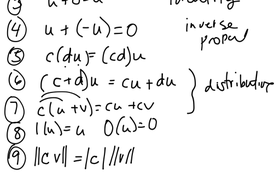 ③ u + 0 = u identity
④ u + (-u) = 0 inverse
proper
⑤ c(du) = (cd)u
⑥ (c+d)u = cu + du
distributive
⑦ c(u+v) = cu + cv
⑧ 1(u) = u 0(u) = 0
⑨ ||cv|| = |c| ||v||